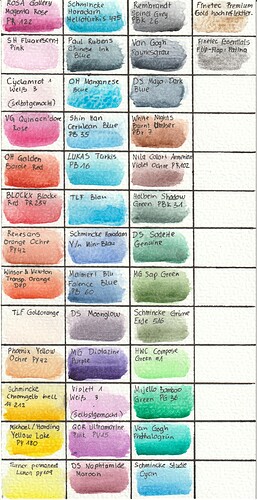 ROSA Gallery
Magenta Rose
PR 122
SH Fluorescent
Pink
Weiß 3
(selbstgemacht)
VG Quinacridone
Rose
OH Golden
Red
BLOCKX
Red PR 254
Renesans
Orange Ochre
PY 42
Winsor & Newton
Transp. Orange
DPP
TLF
Phoenix Yellow
Ochre PY 42
Schmincke
Chromgelb hell
14 212
Michael Harding
Yellow Lake
PY 180
Turner permanent
Lemon
Schmincke
Horadam
Helioturkis 475
Paul Rubens
Chinese Ink
Blue
OH Manganese
Blue
Shin Han
Cerulean Blue
PB 35
LUKAS Türkis
PB 16
TLF Blau
Schmincke Horadam
Blau
Maimeri Blu
Faience Blue
PB 60
DS Moonglow
MG Dioxazine
Purple
Violett 1
Weiß 3
(Selbstgemacht)
QOR Ultramarine
Pink PV15
DS Naphtamide
Maroon
Rembrandt
Grey
PBK 26
Van Gogh
Paynesgrau
DS Mayan Dark
Blue
White Nights
Umber
PBr 7
Violet Ochre PR 102
Holbein Shadow
Green PBK 31
DS Sodalite
Genuine
MG Sap Green
Schmincke Grüne
Erde 516
HWC Compose
Green n.1
Mijello Bamboo
Green PG 36
Van Gogh
Phthalogrün
Schmincke Studie
Cyan
Finetec Premium
Finetec Essentials